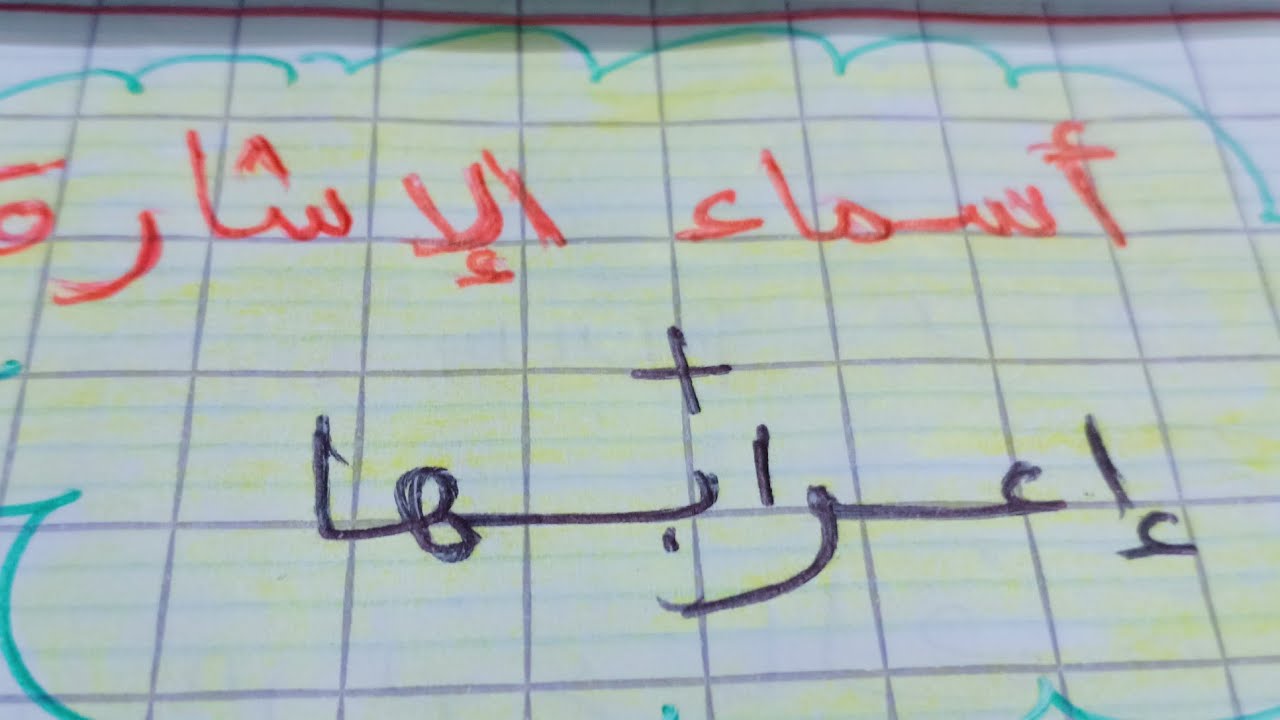 أسماء الإشارة
+
إعرابها